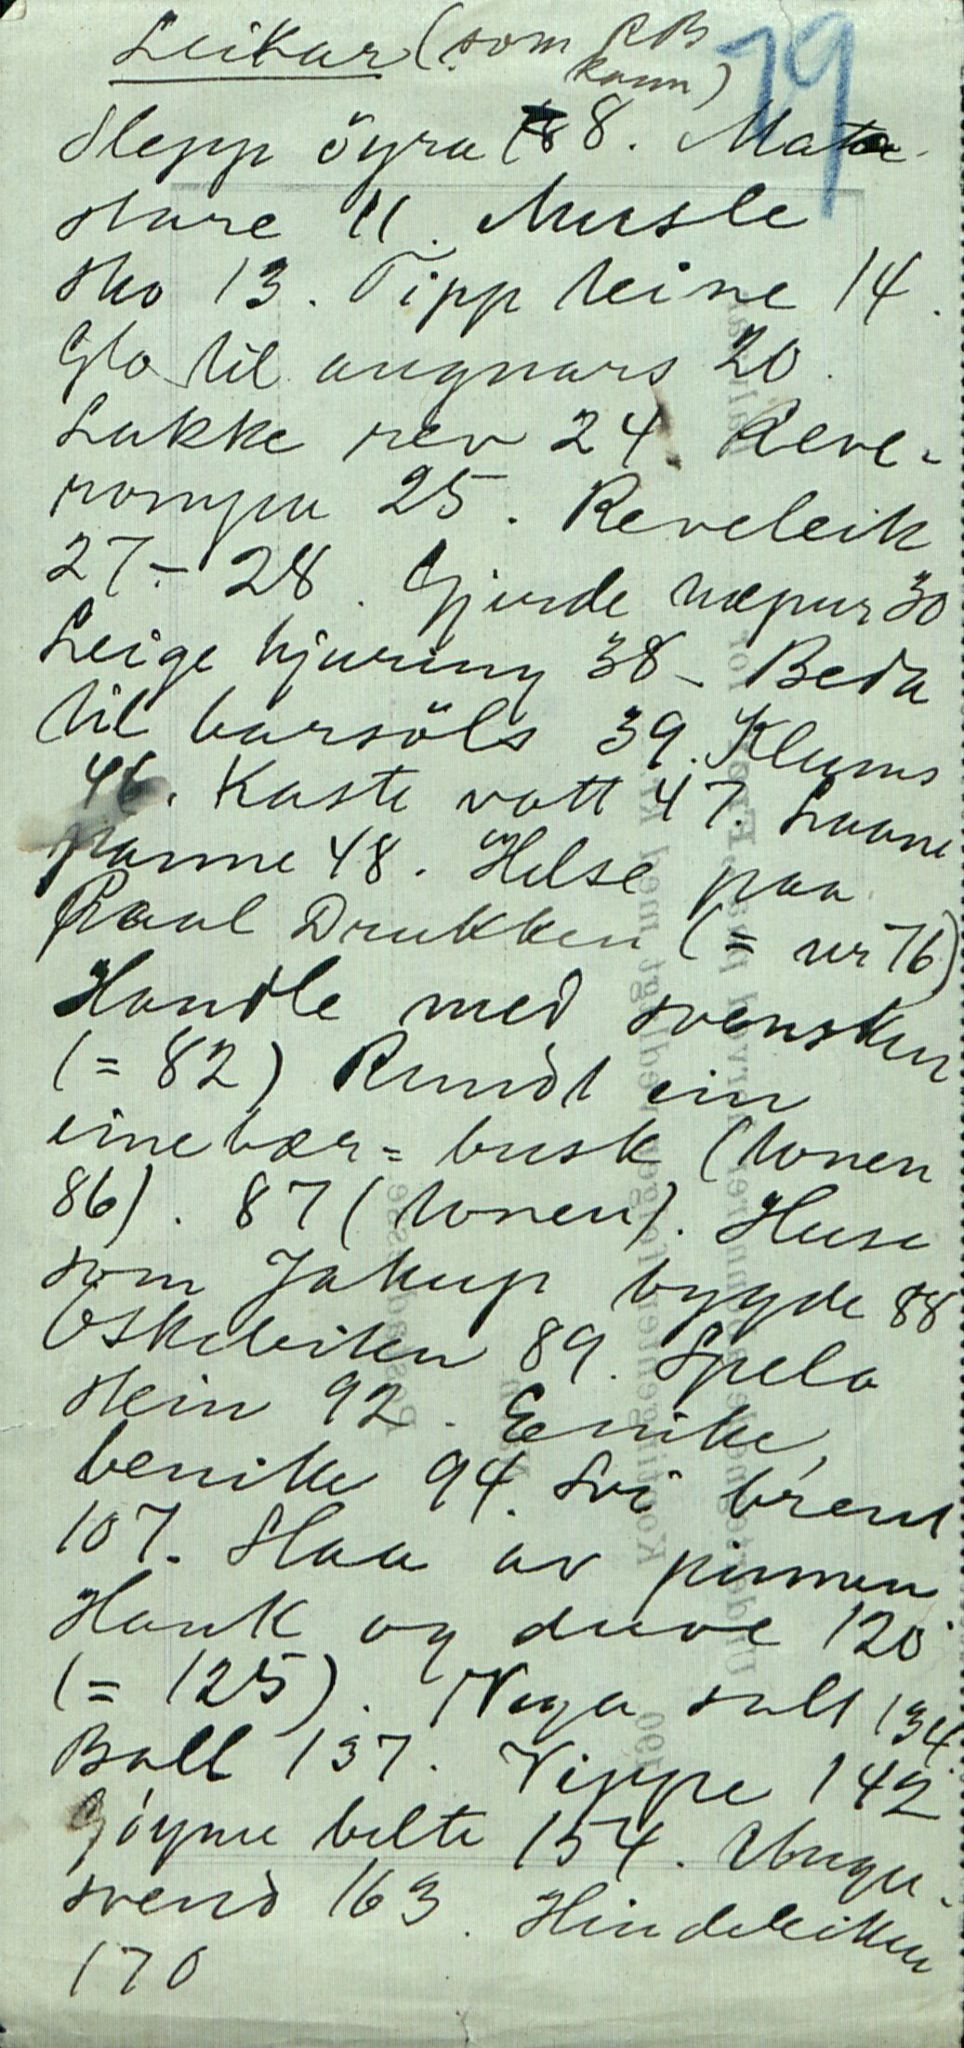 Leikar (som RB
kann)
79
Slepp öyra 8. Mata
stare 11. Musle
sko 13. Tipp teine 14.
Glo til augnars 20.
Lukke rev 24. Reve-
rompa 25. Reveleik
27-28. Gjerde næpur 30
Leige hjuring 38 - Beda
til barsöls 39. Klums
46. Kaste vott 47. Laane
panne 48. Helse paa
Paal Drukken (= nr 76)
Handle med svensken
(= 82) Rundt ein
einebær=busk (tonen
86). 87 (tonen). Huse
som Jakup bygde 88
Oskeleiken 89. Spela
stein 92. Enike,
benike 94. Svi brent
107. Slaa av pinnen
Hauk og duve 120
(= 125). Vega salt 134.
Ball 137. Vippe 142
Gjöyme belte 154. Unge-
svend 163. Hindeleiken
170